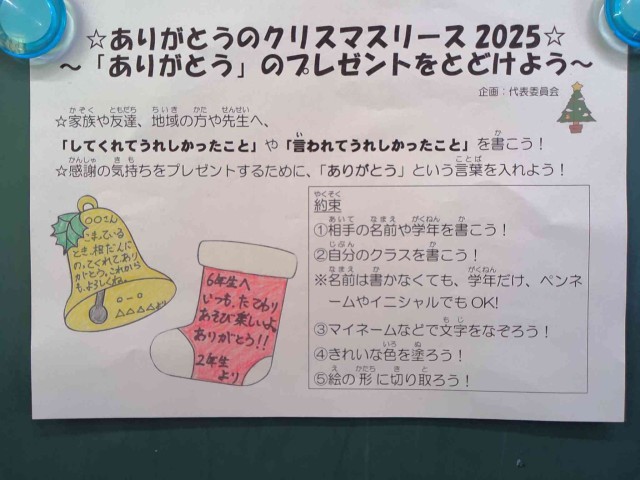 ☆ありがとうのクリスマスリース 2025☆
～「ありがとう」のプレゼントをとどけよう～
企画：代表委員会
☆家族や友達、地域の方や先生へ、
「してくれてうれしかったこと」や「言われてうれしかったこと」を書こう！
☆感謝の気持ちをプレゼントするために、「ありがとう」という言葉を入れよう！
○○さん
こまっている
とき、相だんに
のってくれてあり
がとう。これから
もよろしくね。
○-○
△△△△より
6年生へ
いつも、たてわり
あそび楽しいよ
ありがとう!!
2年生
より
約束
①相手の名前や学年を書こう！
②自分のクラスを書こう！
※名前は書かなくても、学年だけ、ペンネ
ームやイニシャルでも OK!
③マイネームなどで文字をなぞろう！
④きれいな色を塗ろう！
⑤絵の形に切り取ろう！